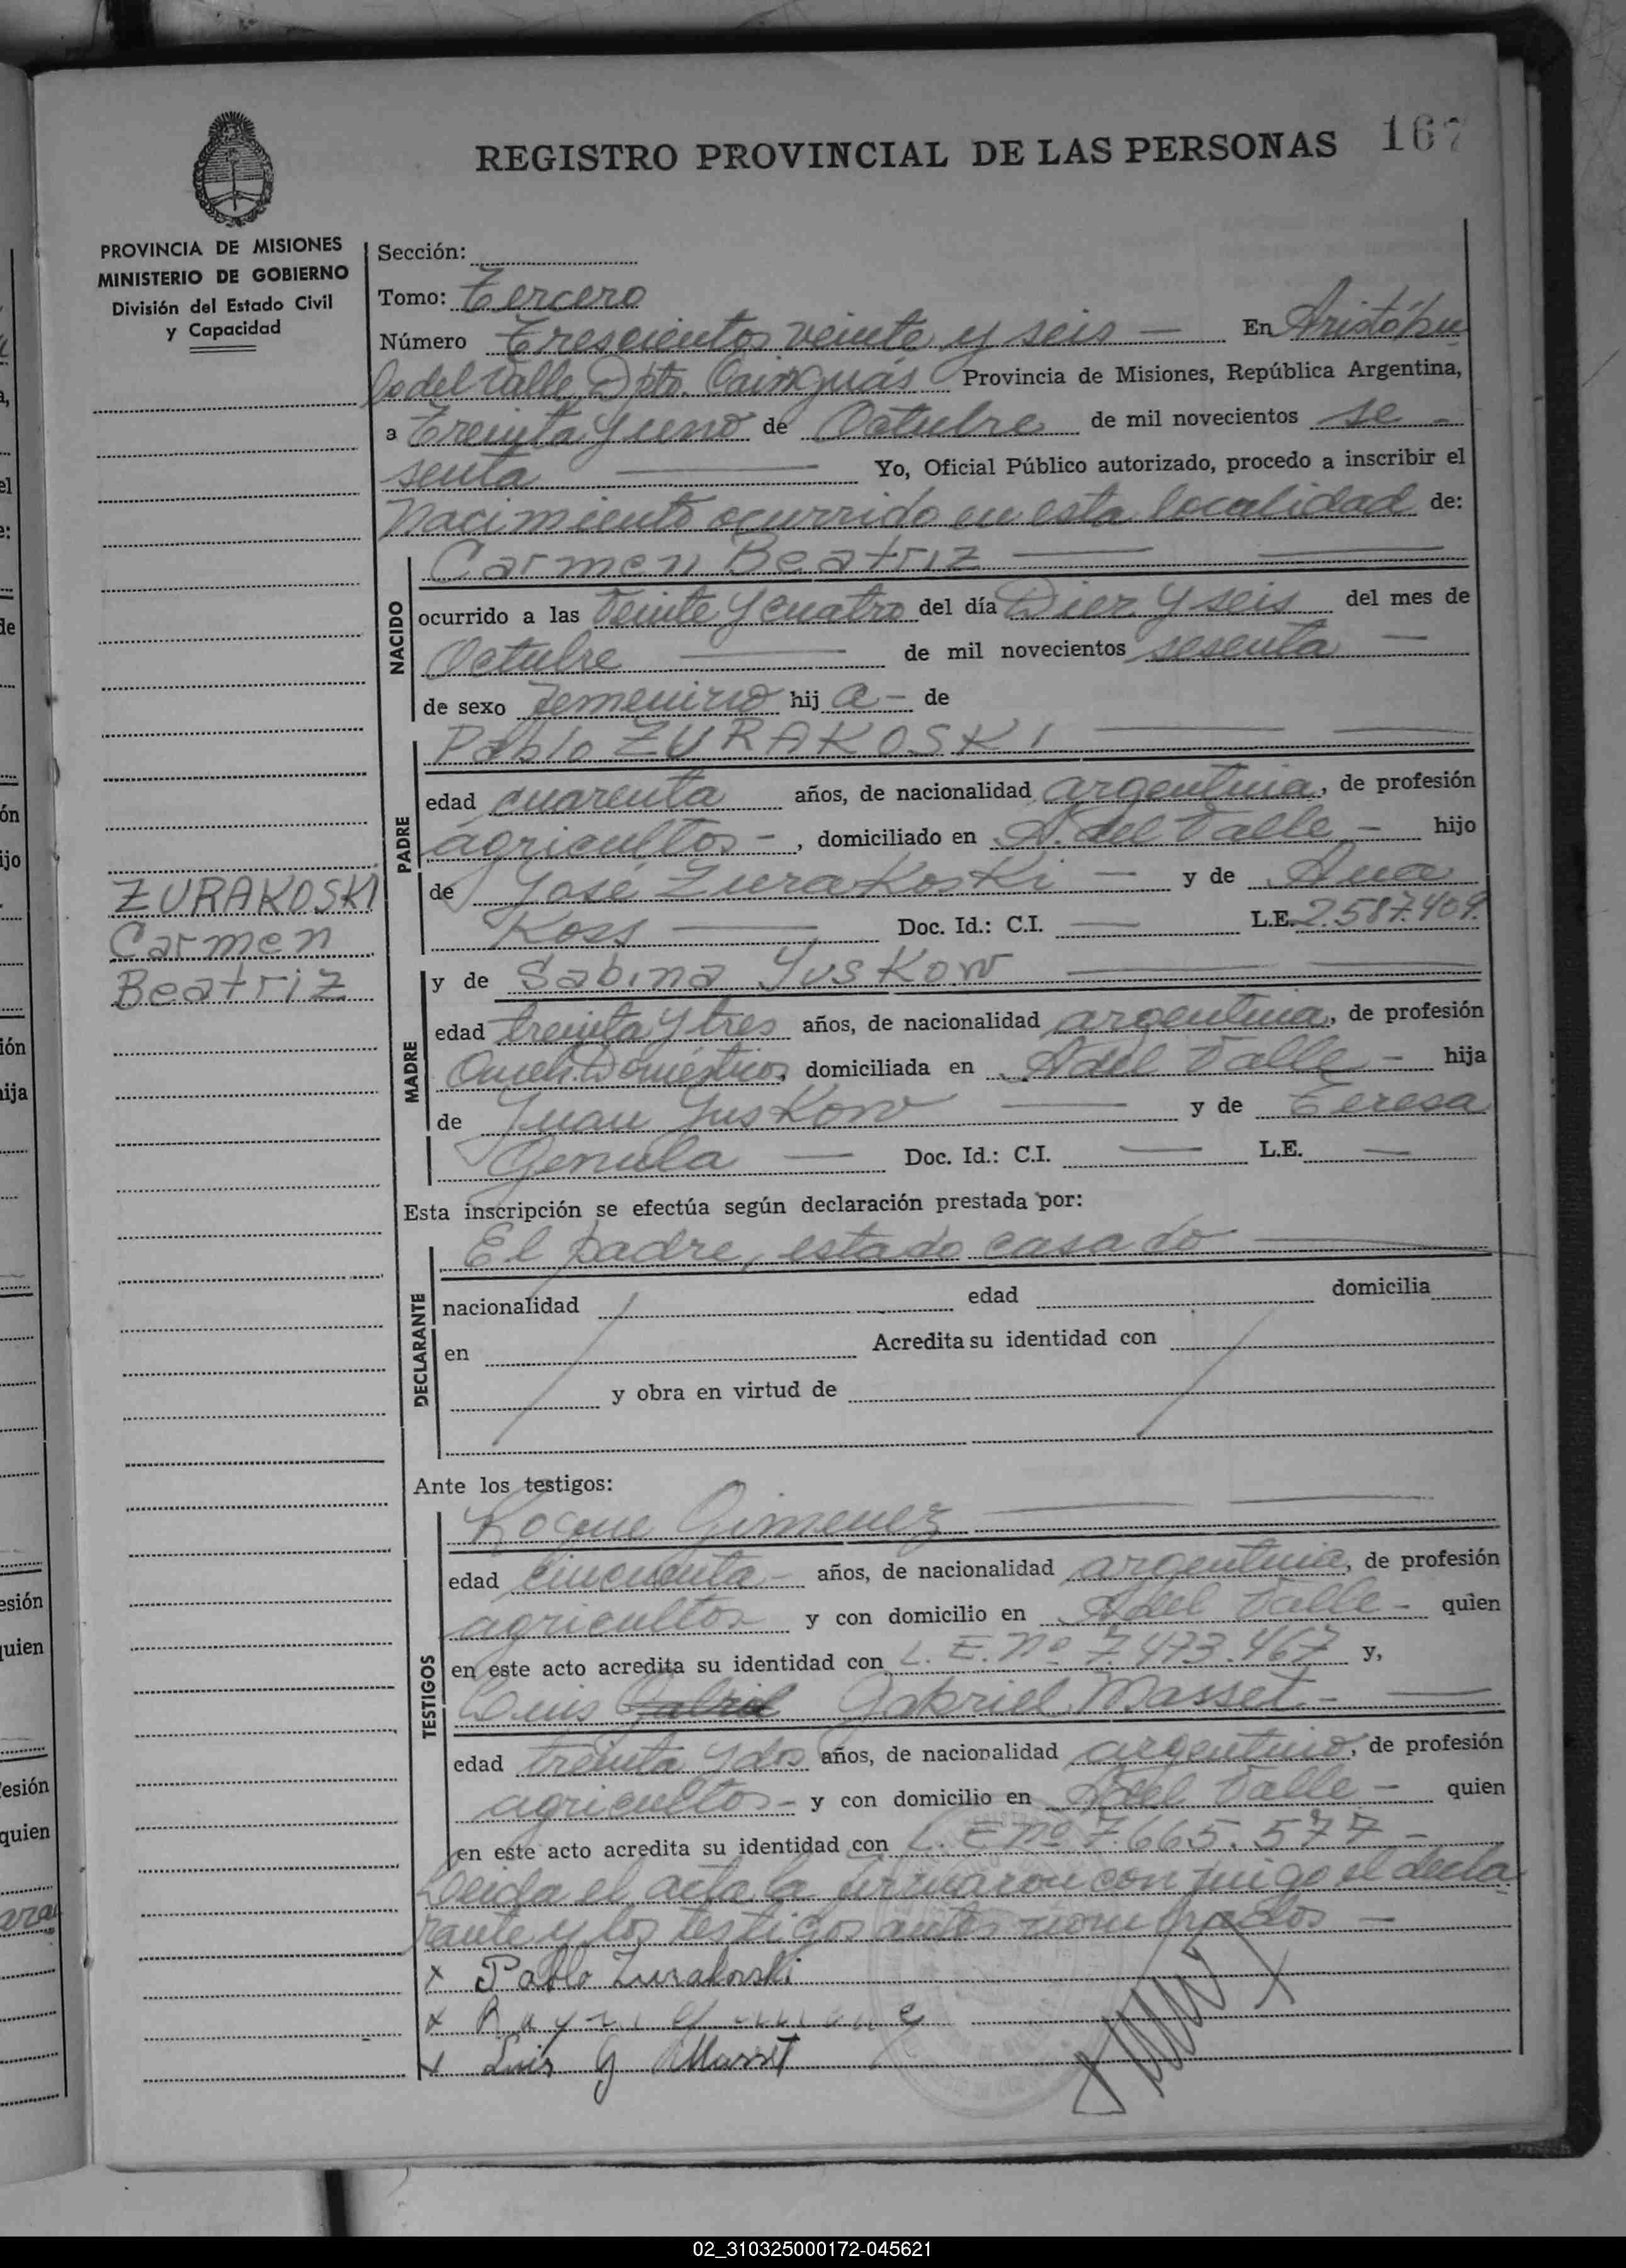 REGISTRO PROVINCIAL DE LAS PERSONAS 167
PROVINCIA DE MISIONES
MINISTERIO DE GOBIERNO
División del Estado Civil
y Capacidad
Sección:
Tomo: Tercero
Número Trescientos veinte y seis — En Aristóbu
lo del Valle, Dpto. Cainguás Provincia de Misiones, República Argentina,
a Treinta y uno de Octubre de mil novecientos se-
senta — Yo, Oficial Público autorizado, procedo a inscribir el
Nacimiento ocurrido en esta localidad de:
NACIDO
Carmen Beatriz —
ocurrido a las Veinte y cuatro del día Diez y seis del mes de
Octubre — de mil novecientos sesenta —
de sexo femenino hij a - de
PADRE
Pablo ZURAKOSKI —
edad cuarenta años, de nacionalidad argentina, de profesión
agricultor -, domiciliado en A. del Valle - hijo
de José Zurakoski — y de Ana
Koss — Doc. Id.: C.I. — L.E. 2.587.409.
ZURAKOSKI
Carmen
Beatriz
MADRE
y de Sabina Yuskow —
edad treinta y tres años, de nacionalidad argentina, de profesión
Queh. Domésticos, domiciliada en A del Valle - hija
de Juan Yuskow — y de Teresa
Genula — Doc. Id.: C.I. — L.E. —
Esta inscripción se efectúa según declaración prestada por:
DECLARANTE
El padre, estado casado —
nacionalidad edad domicilia
en Acredita su identidad con
y obra en virtud de
Ante los testigos:
TESTIGOS
Roque Gimenez —
edad cincuenta - años, de nacionalidad argentina, de profesión
agricultor y con domicilio en A del Valle - quien
en este acto acredita su identidad con L. E. Nº 7.473.467 y,
Luis Gabriel Masset - —
edad treinta y dos años, de nacionalidad argentino, de profesión
agricultor - y con domicilio en A del Valle - quien
en este acto acredita su identidad con L. E Nº 7.665.577 -
Leida el acta la firmaron conmigo el decla
rante y los testigos antes nombrados —
x Pablo Zurakoski
x
x Luis G Masset
02_310325000172-045621